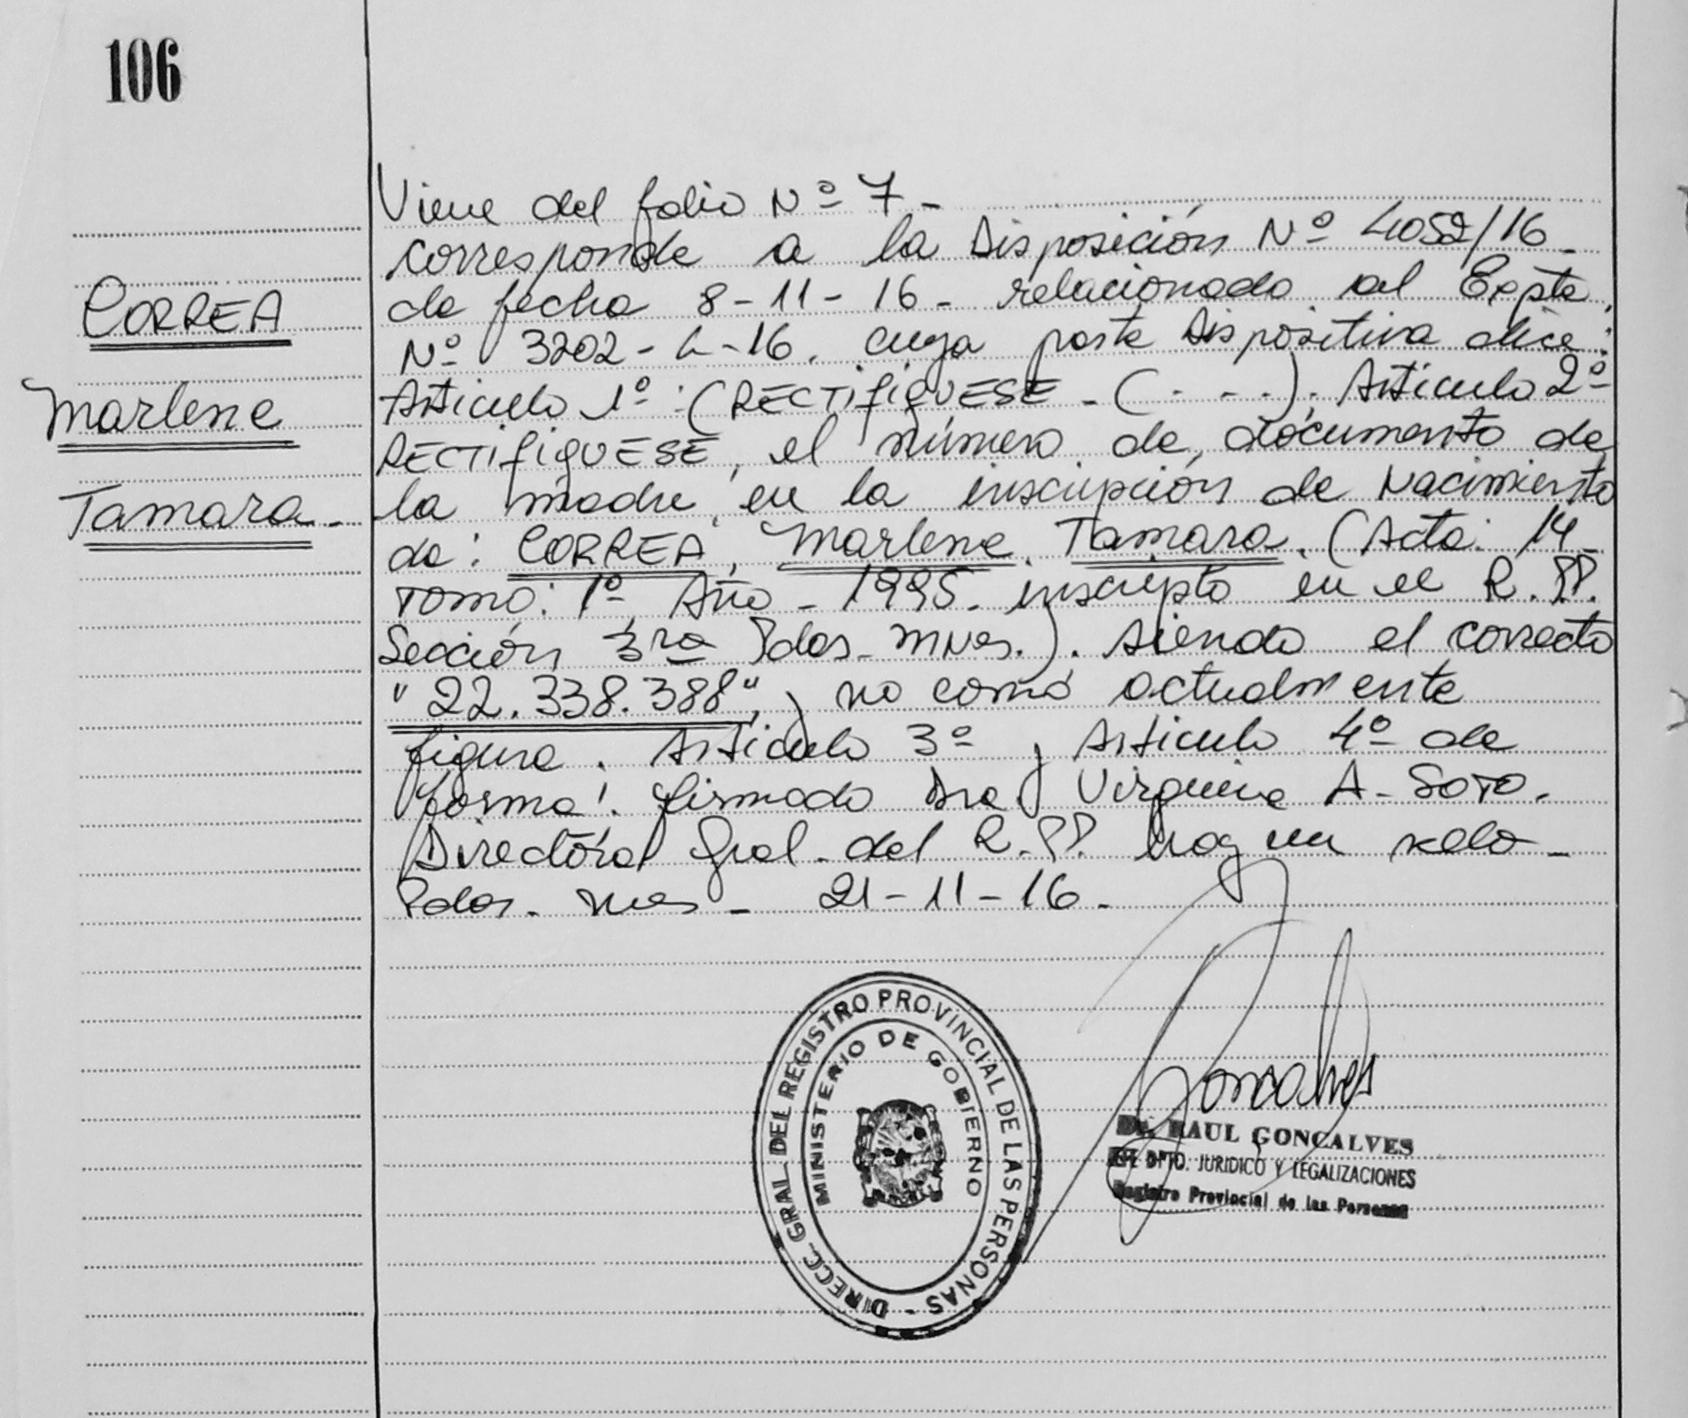 106
CORREA
Marlene
Tamara.-
Viene del folio Nº 7 -
corresponde a la Disposición Nº 4052/16 -
de fecha 8-11-16 - relacionado al Expte.
Nº 3202-L-16. cuya parte Dispositiva dice:
Articulo 1º: (RECTIFIQUESE - (...). Articulo 2º
RECTIFIQUESE, el número de documento de
la madre, en la inscripción de Nacimiento
de: CORREA, Marlene, Tamara. (Acta: 14
TOMO: 1º Año - 1995. inscripto en el R.PP.
Sección 3ra Pdas. Mnes.). siendo el correcto
"22.338.388", y no como actualmente
figura. Articulo 3º y Articulo 4º de
forma!. firmado Dra Virginia A. SOTO.
Directora Gral. del R.PP. hay un sello -
Pdas. Mnes - 21-11-16.
DIRECC. GRAL. DEL REGISTRO PROVINCIAL DE LAS PERSONAS -
MINISTERIO DE GOBIERNO
Goncalves
Dr. RAUL GONCALVES
JEFE DPTO. JURIDICO Y LEGALIZACIONES
Registro Provincial de las Personas